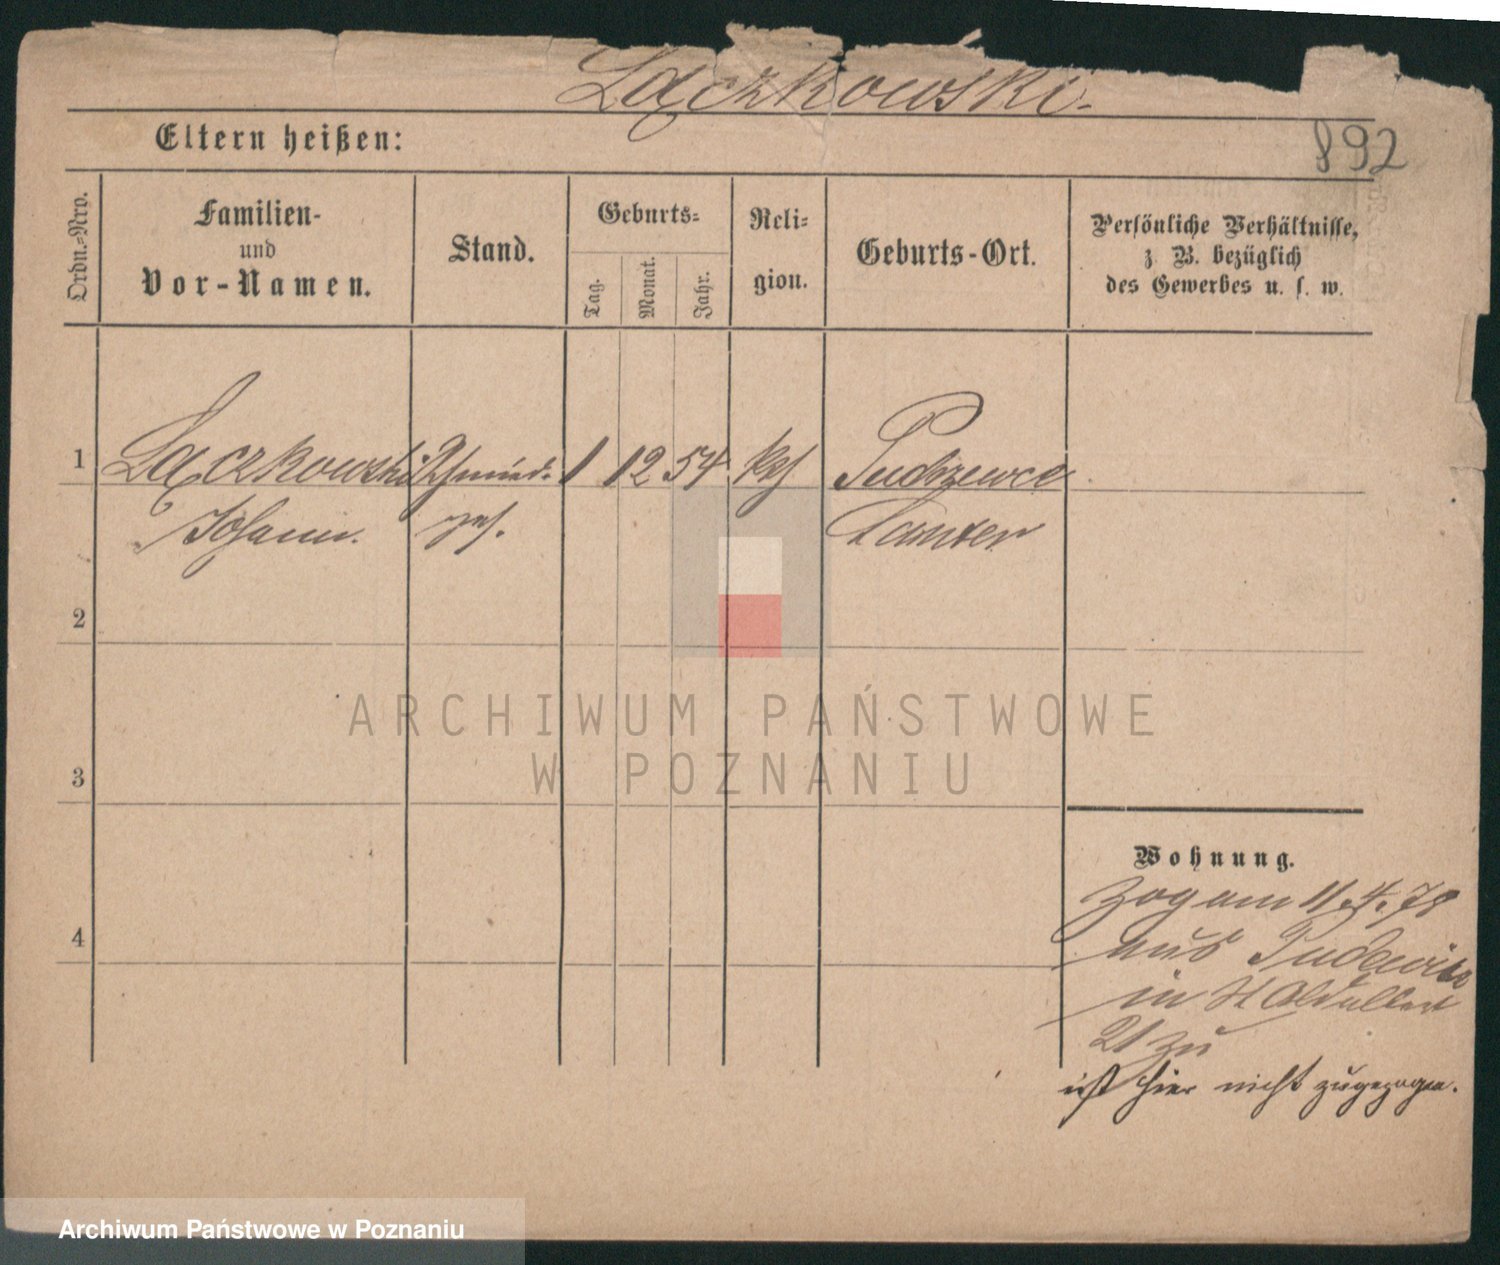 Łączkowski.
892
Eltern heißen:
Ordn.-Nro.
Familien-
und
Vor-Namen.
Stand.
Geburts-
Tag.
Monat.
Jahr.
Reli-
gion.
Geburts-Ort.
Persönliche Verhältnisse,
z. B. bezüglich
des Gewerbes u. s. w.
1 Łączkowski Schmied- 1 12 54 kth
Johann. ges. Samter
2
3
4
ARCHIWUM PAŃSTWOWE
W POZNANIU
Wohnung.
Zog am 11.4.78
aus
in
21 zu
ist hier nicht zugezogen.
Archiwum Państwowe w Poznaniu